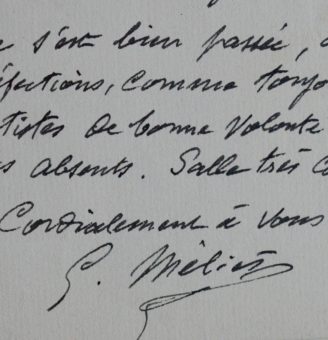 s'est bien passée,
fections, comme toujo
tistes de bonne volonté
s absents. Salle très c
Cordialement à vous
G. Méliès